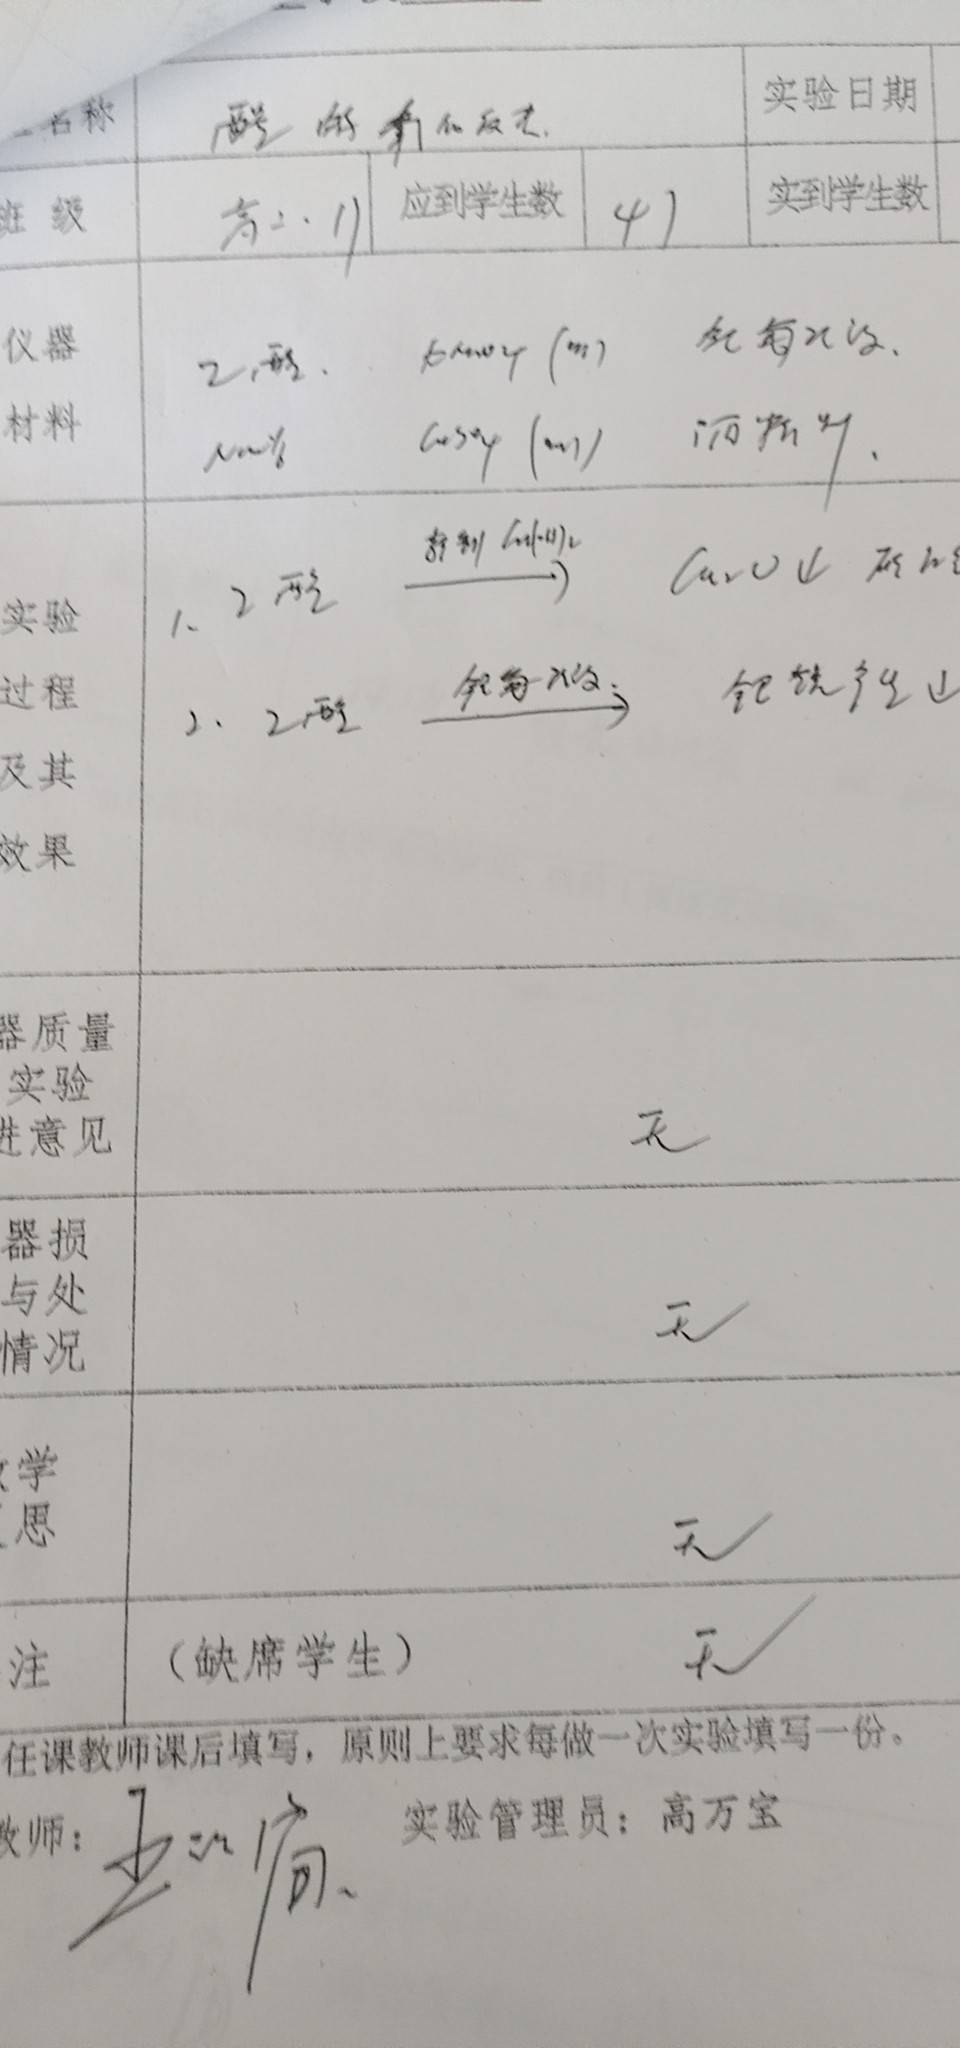 名称 醛的氧化反应. 实验日期
班级 高二.11 应到学生数 41 实到学生数
仪器
材料
乙醛. KMnO4 银氨溶液.
CuSO4 酒精灯.
实验
过程
及其
效果
1. 乙醛 新制 Cu(OH)2 Cu2O↓ 砖红色
2. 乙醛 银氨溶液. 银镜产生↓
器质量
实验
进意见
无
器损
与处
情况
无
教学
反思
无
注 (缺席学生) 无
任课教师课后填写，原则上要求每做一次实验填写一份。
教师: 实验管理员：高万宝